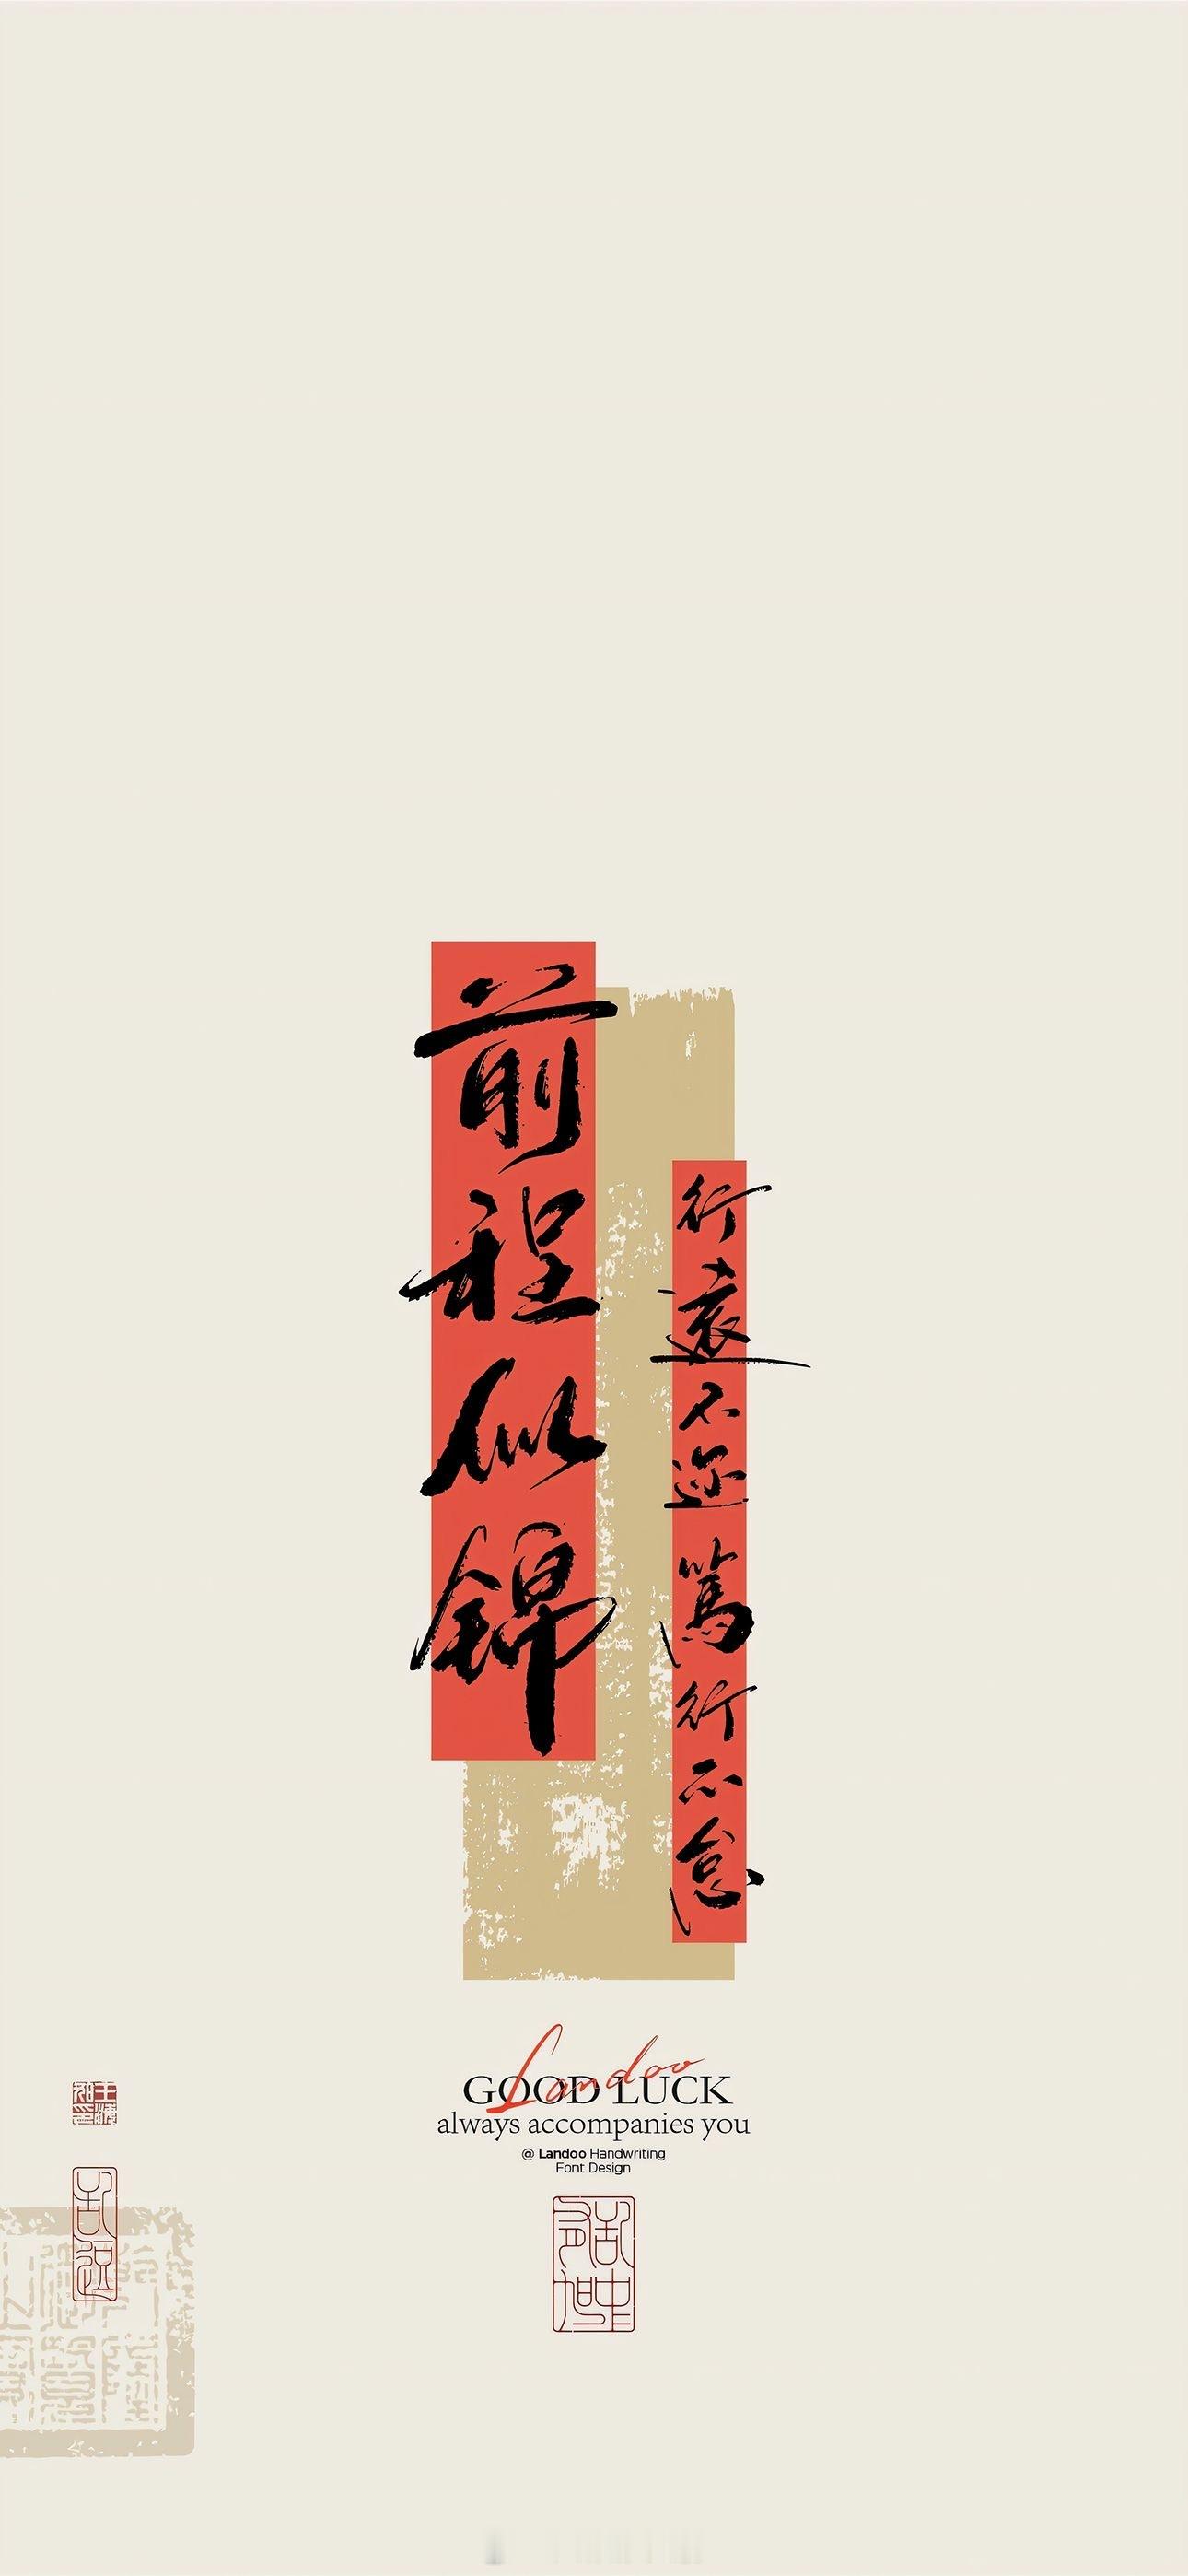 前程似錦
行遠不迩
篤行不怠
Landoo
GOOD LUCK
always accompanies you
@ Landoo Handwriting
Font Design